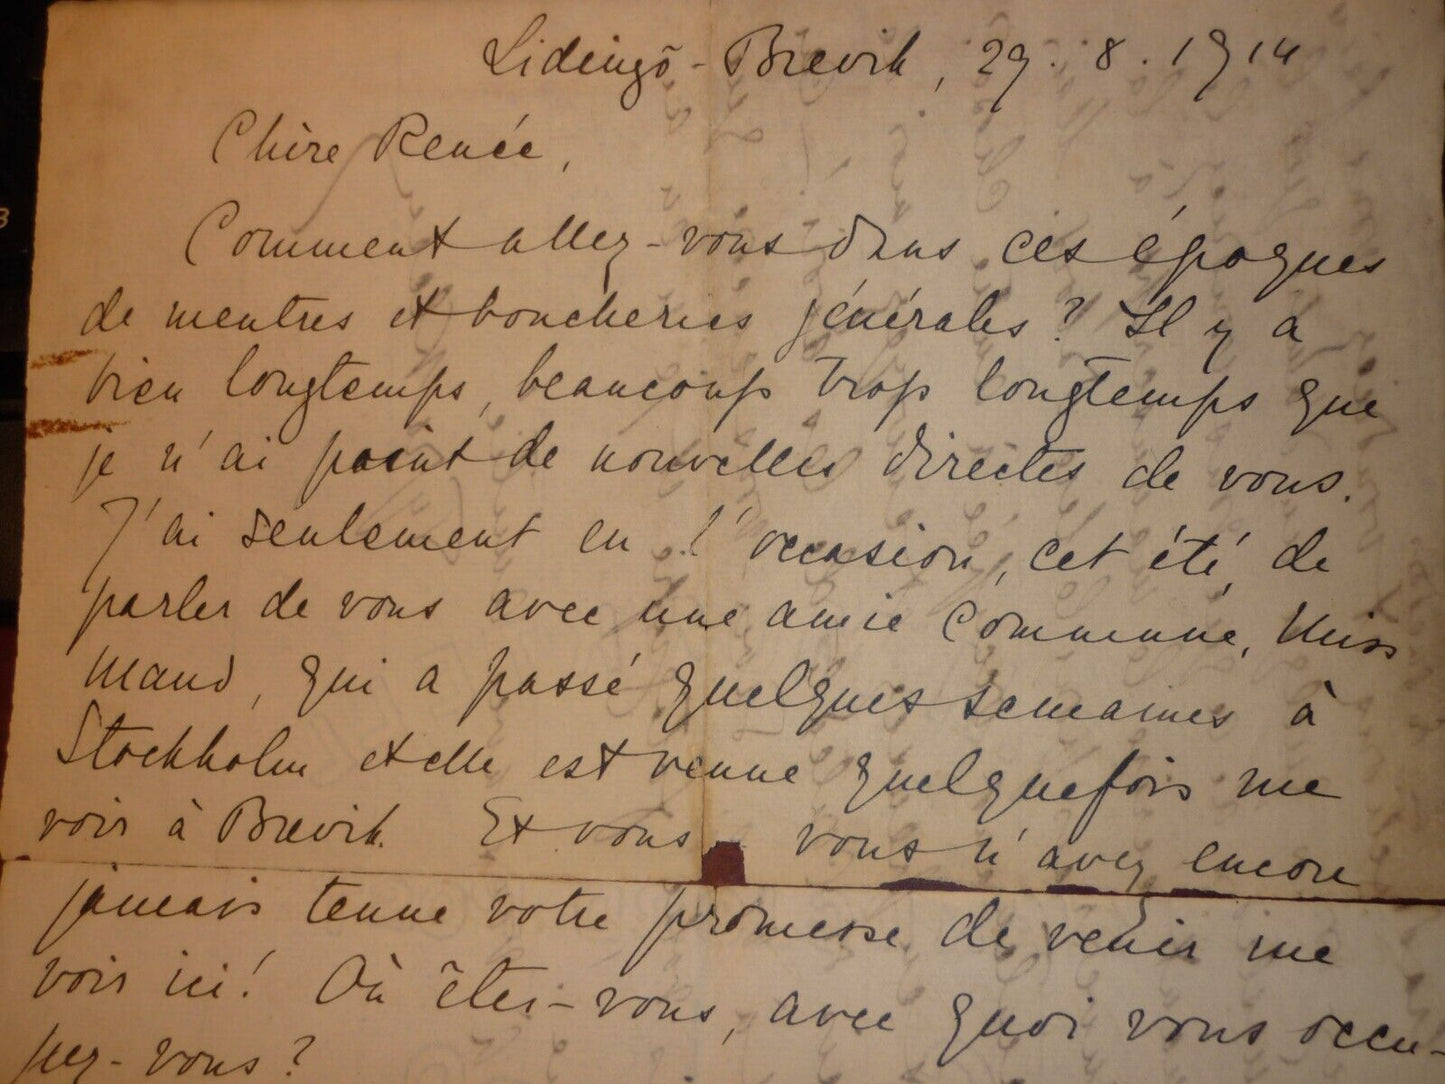 Lidingö-Brevik, 29.8.1914
Chère Renée,
Comment allez-vous dans ces époques
de meutres et boucheries générales? Il y a
bien longtemps, beaucoup trop longtemps que
je n'ai point de nouvelles directes de vous.
J'ai seulement eu l'occasion, cet été, de
parler de vous avec une amie commune, Miss
Maud, qui a passé quelques semaines à
Stockholm et elle est venue quelquefois me
voir à Brevik. Et vous vous n'avez encore
jamais tenue votre promesse de venir me
voir ici! Où êtes-vous, avec quoi vous occu-
pez-vous?